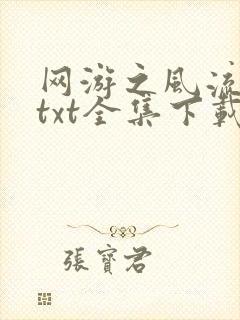 网游之风流
txt全集下载
張寶君